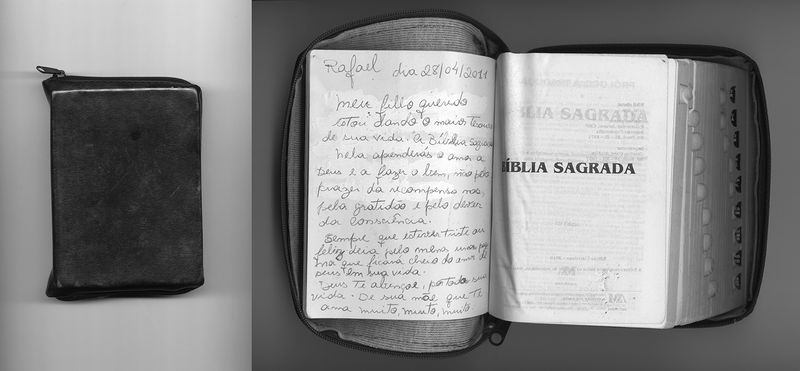 Rafael dia 28/04/2011
Meu filho querido
estou dando o maior tesouro
de sua vida. A Bíblia Sagrada
Nela aprenderás o amor a
Deus e a fazer o bem, não pelo
prazer da recompensa mas,
pela gratidão e pelo dever
da consciência.
Sempre que estiver triste ou
feliz leia pelo menos uma pági
na que ficará cheio do amor de
Deus em sua vida.
Deus te abençoe, por toda sua
vida. De sua mãe que te
ama muito, muito, muito.
BÍBLIA SAGRADA